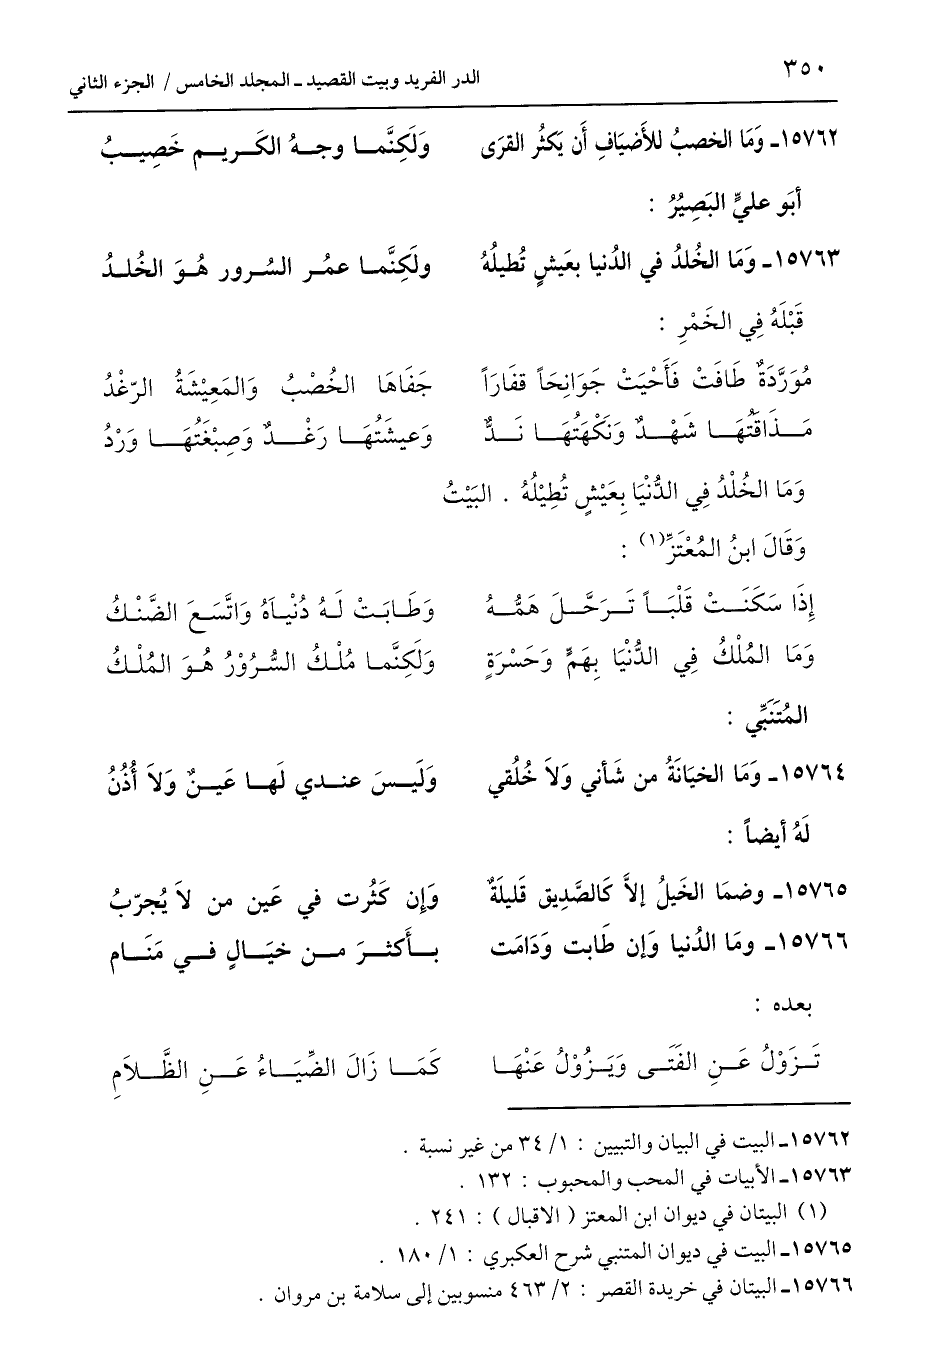 ٣٥٠ الدر الفريد وبيت القصيد ـ المجلد الخامس / الجزء الثاني
١٥٧٦٢ـ وَمَا الخصبُ للأَضيَافِ أَن يَكثُر القرَى وَلَكِنَّمـا وجـهُ الكَـريـم خَصِيـبُ
أبَو عليٍّ البَصِيْرُ :
١٥٧٦٣ـ وَمَا الخُلدُ في الدُنيا بعَيشٍ تُطيلُهُ ولَكِنَّمـا عمُـر السُـرور هُـوَ الخُلـدُ
قَبْلَهُ فِي الخَمْرِ :
مُوَرَّدَةٌ طَافَتْ فَأَحْيَتْ جَوَانِحَاً قفَارَاً جَفَاهَا الخُصْبُ وَالمَعِيْشَةُ الرّغْدُ
مَـذَاقَتُهَـا شَهْـدٌ وَنَكْهَتُهَـا نَـدٌّ وَعيشَتُهَـا رَغْـدٌ وَصِبْغَتُهَـا وَرْدُ
وَمَا الخُلْدُ فِي الدُّنْيَا بِعَيْشٍ تُطِيْلُهُ . البَيْتُ
وَقَالَ ابنُ المُعْتَزِّ(١) :
إِذَا سَكَنَـتْ قَلْبَـاً تَـرَحَّـلَ هَمُّـهُ وَطَـابَـتْ لَـهُ دُنْيـاَهُ وَاتَّسَـعَ الضَّنْـكُ
وَمَا المُلْكُ فِي الدُّنْيَا بِهَمٍّ وَحَسْرَةٍ وَلَكِنَّمـا مُلْـكُ السُّـرُوْرُ هُـوَ المُلْـكُ
المُتَنَبِّي :
١٥٧٦٤ـ وَمَا الخيَانَةُ من شَأني وَلاَ خُلُقي وَلَيـسَ عنـدي لَهـا عَيـنٌ وَلاَ أُذُنُ
لَهُ أيضاً :
١٥٧٦٥ـ وضمَا الخَيلُ إلاَّ كَالصَّدِيق قَليلَةٌ وَإِن كَثُرت في عَين من لاَ يُجرّبُ
١٥٧٦٦ـ ومَا الدُنيا وَإِن طَابت وَدَامَت بـأكثـرَ مـن خيَـالٍ فـي مَنَـام
بعده :
تَـزُوْلُ عَـنِ الفَتَـى وَيَـزُوْلُ عَنْهَـا كَمَـا زَالَ الضِّيَـاءُ عَـنِ الظَّـلاَمِ
١٥٧٦٢ـ البيت في البيان والتبيين : ١/ ٣٤ من غير نسبة .
١٥٧٦٣ـ الأبيات في المحب والمحبوب : ١٣٢ .
(١) البيتان في ديوان ابن المعتز ( الاقبال ) : ٢٤١ .
١٥٧٦٥ـ البيت في ديوان المتنبي شرح العكبري : ١/ ١٨٠ .
١٥٧٦٦ـ البيتان في خريدة القصر : ٢/ ٤٦٣ منسوبين إلى سلامة بن مروان .